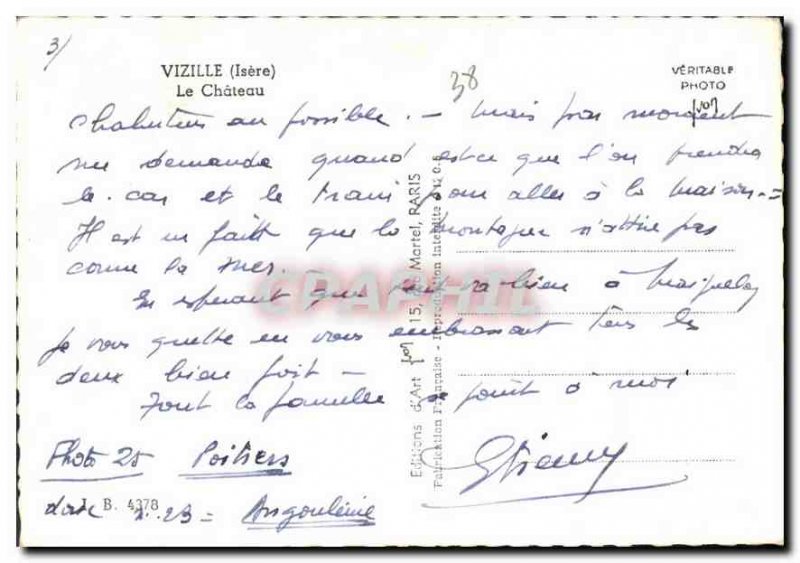 3/
38
VIZILLE (Isère)
Le Château
VÉRITABLE
PHOTO
chahuteurs au possible. - Mais par moment
me demande quand est ce que l'on prendra
le car et le train pour aller à la maison -
Il est un fait que la montagne n'attire pas
comme la mer.
En espérant que tout va bien à
je vous quitte en vous embrassant tous les
deux bien fort -
Toute la famille se joint à moi
Photo 25 Poitiers
J. B. 4378
date 23 = Angoulême
Editions d'Art 15, rue Martel, PARIS
Fabrication Française - Reproduction Interdite
CPAPHIL